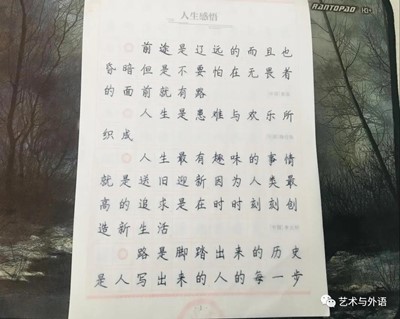 人生感悟
RANTOPAD H1+
前途是辽远的而且也
昏暗但是不要怕在无畏者
的面前就有路
人生是患难与欢乐所
织成
人生最有趣味的事情
就是送旧迎新因为人类最
高的追求是在时时刻刻创
造新生活
路是脚踏出来的历史
是人写出来的人的每一步
艺术与外语